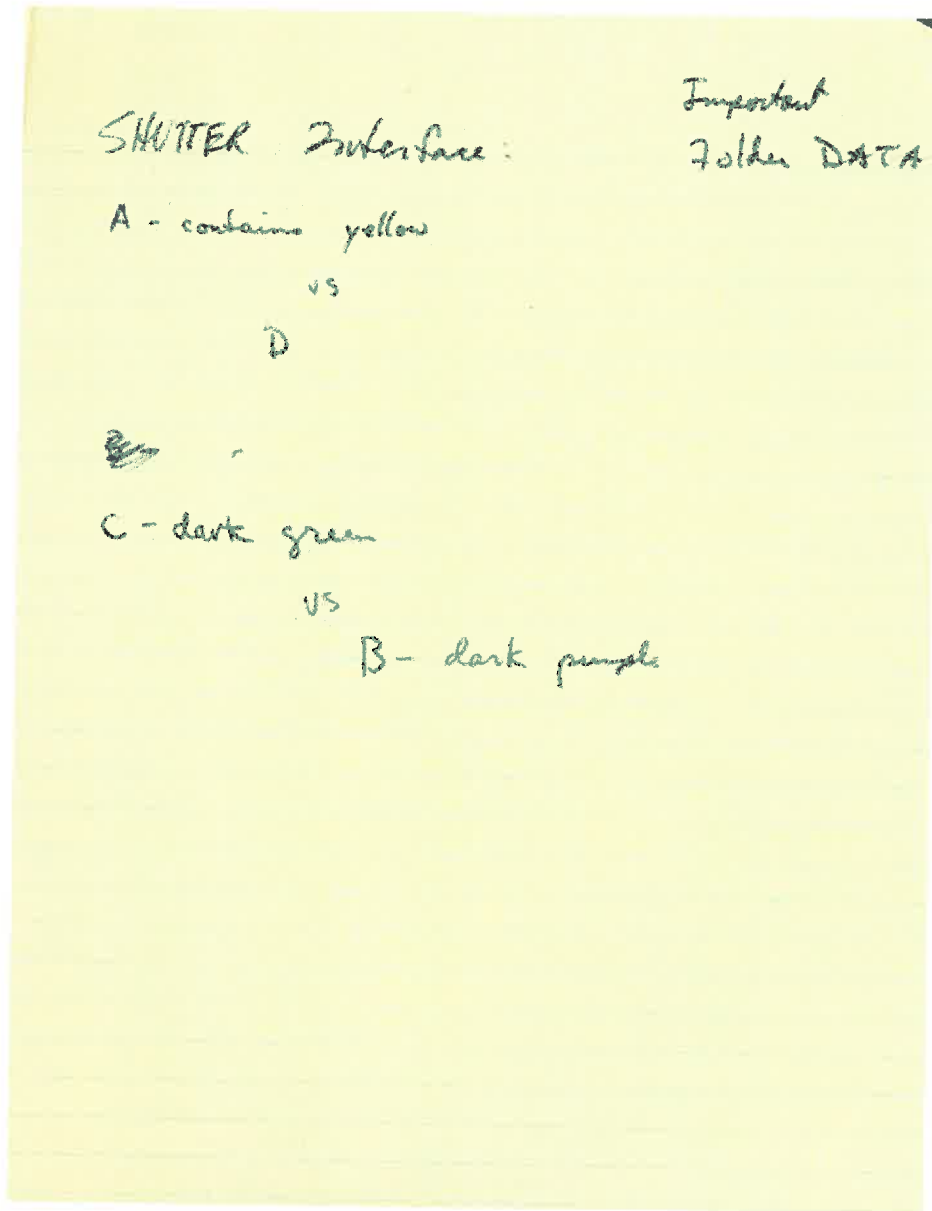 Important
Folder DATA
SHUTTER Interface:
A - contains yellow
vs
D
C - dark green
vs
B - dark purple